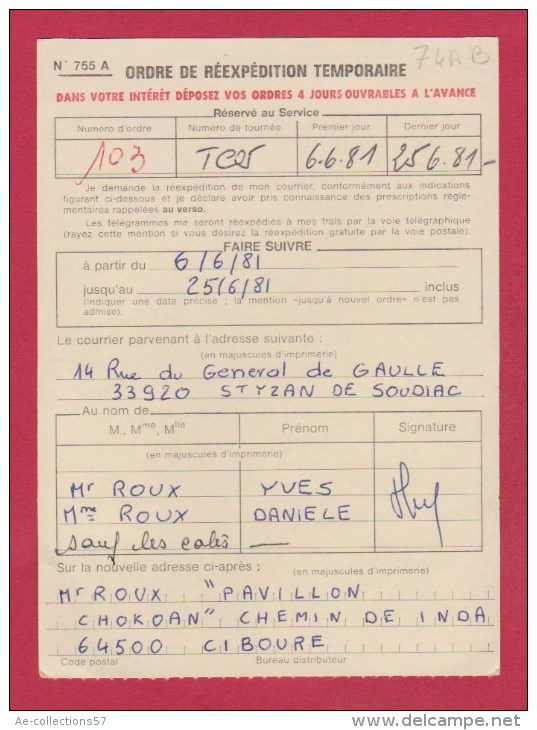 N° 755 A
74AB
ORDRE DE RÉEXPÉDITION TEMPORAIRE
DANS VOTRE INTÉRÊT DÉPOSEZ VOS ORDRES 4 JOURS OUVRABLES A L'AVANCE
Réservé au Service
Numéro d'ordre Numéro de tournée Premier jour Dernier jour
103 TC25 6.6.81 25 6.81-
Je demande la réexpédition de mon courrier, conformément aux indications
figurant ci-dessous et je déclare avoir pris connaissance des prescriptions règle-
mentaires rappelées au verso.
Les télégrammes me seront réexpédiés à mes frais par la voie télégraphique
(rayez cette mention si vous désirez la réexpédition gratuite par la voie postale).
FAIRE SUIVRE
à partir du 6/6/81
jusqu'au 25/6/81 inclus
(Indiquer une date précise ; la mention «jusqu'à nouvel ordre» n'est pas
admise).
Le courrier parvenant à l'adresse suivante :
(en majuscules d'imprimerie)
14 Rue du General de GAULLE
33920 STYZAN DE SOUDIAC
Au nom de
M., Mme, Mlle Prénom Signature
(en majuscules d'imprimerie)
Mr ROUX YVES
Mme ROUX DANIELE
sauf les colis —
Sur la nouvelle adresse ci-après : (en majuscules d'imprimerie)
Mr ROUX "PAVILLON
CHOKOAN" CHEMIN DE INDA
64500 CIBOURE
Code postal Bureau distributeur
Ae-collections57
delcampe.net